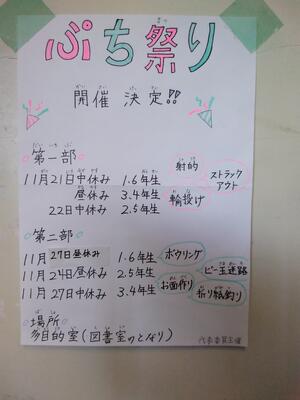 ぷち祭り
開催 決定!!
第一部
射的
11月21日中休み 1.6年生
ストラックアウト
昼休み 3.4年生
輪投げ
22日中休み 2.5年生
第二部
11月27日昼休み 1.6年生
ボウリング
11月24日昼休み 2.5年生
ビー玉迷路
11月27日中休み 3.4年生
お面作り
折り紙釣り
場所
多目的室(図書室のとなり)
代表委員主催